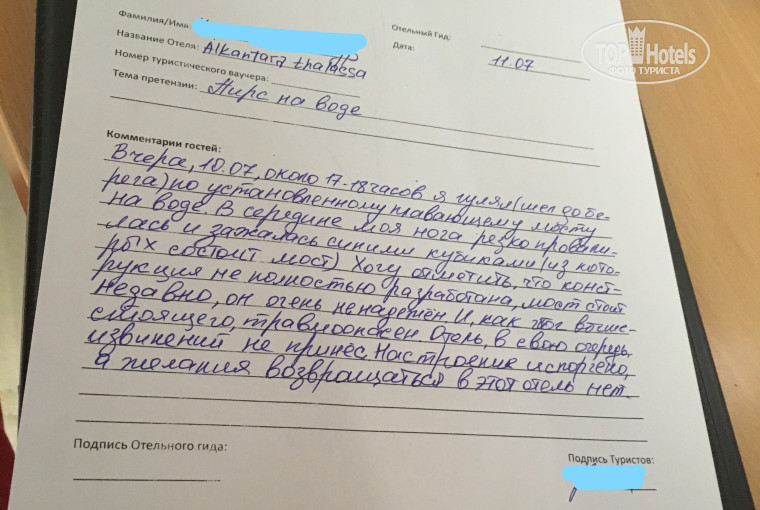 Фамилия/Имя:
Название Отеля: Alkantara thalassa
Номер туристического ваучера:
Тема претензии: Пирс на воде
Отельный Гид:
Дата: 11.07
TOP Hotels
ФОТО ТУРИСТА
Комментарии гостей:
Вчера, 10.07, около 17-18 часов я гулял (шел до бе-
рега) по установленному плавающему мосту
на воде. В середине моя нога резко провали-
лась и зажалась синими кубиками (из кото-
рых состоит мост) Хочу отметить, что конст-
рукция не полностью разработана, мост стоит
недавно, он очень ненадежен и, как для
стоящего, травмоопасен. Отель, в свою очередь,
извинений не принес. Настроение испорчено,
а желания возвращаться в этот отель нет.
Подпись Отельного гида:
Подпись Туристов: